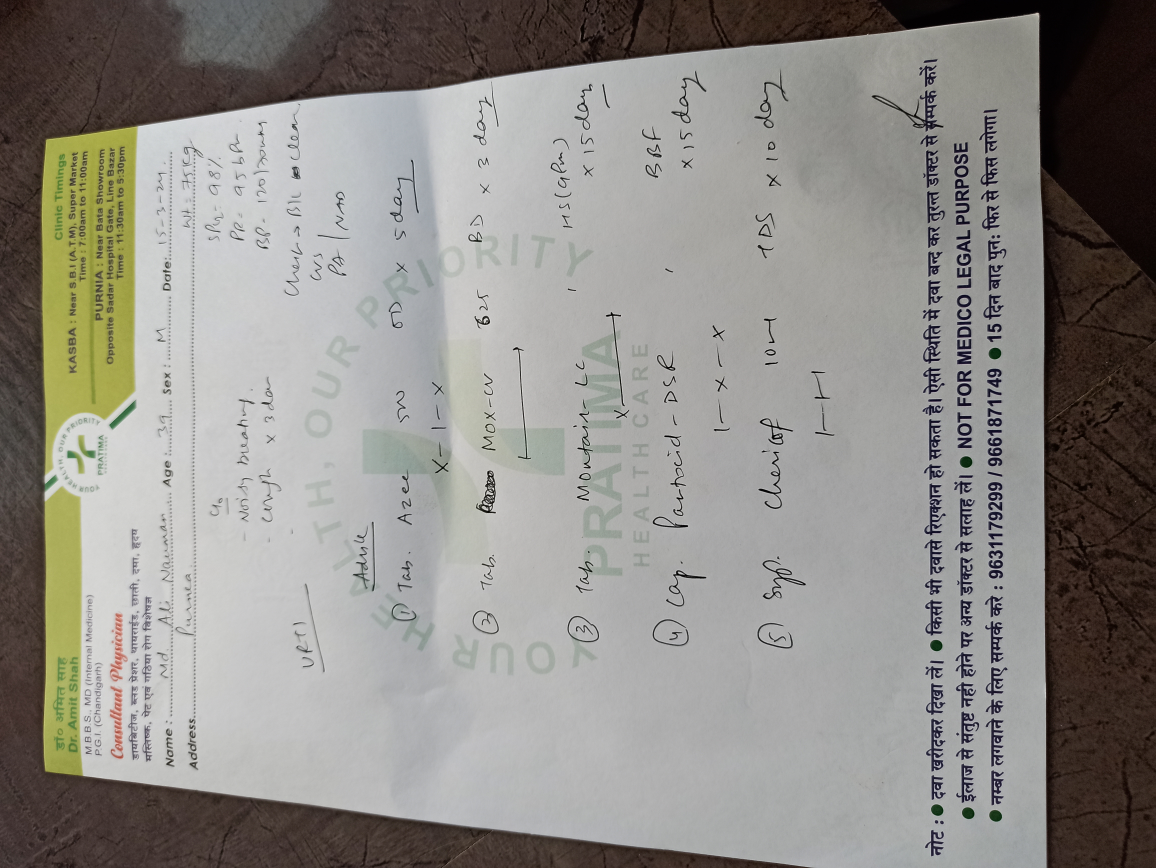 डॉ० अमित साह
Dr. Amit Shah
M.B.B.S., MD (Internal Medicine)
P.G.I. (Chandigarh)
Consultant Physician
डायबिटीज, ब्लड प्रेशर, थायराईड, छाती, दमा, हृदय
मस्तिष्क, पेट एवं गठिया रोग विशेषज्ञ
YOUR HEALTH, OUR PRIORITY
PRATIMA
Clinic Timings
KASBA : Near S.B.I (A.T.M), Super Market
Time : 7:00am to 11:00am
PURNIA : Near Bata Showroom
Opposite Sadar Hospital Gate, Line Bazar
Time : 11:30am to 5:30pm
Name : Md. Ali Nauman Age : 39 Sex : M Date: 15-3-24
Address Purnea Wt = 75Kg
C/o
- Noisy breathing.
- Cough x 3 day
SPO2 = 98%
PR = 95 bpm
BP = 120/70
Chest → B/L clear
CVS
PA / NAD
URTI
Advice
① Tab. Azee 500 OD x 5 day
x – 1 – x
② Tab. Mox-CV 625 BD x 3 day
③ Tab. Montair-LC , HS (9Pm)
x 15 day
④ Cap. Pantocid-DSR , BBF
x 15 day
1 – x – x
⑤ Syp. 10ml TDS x 10 day
1–1–1
YOUR HEALTH, OUR PRIORITY
PRATIMA
HEALTHCARE
नोट : ● दवा खरीदकर दिखा लें। ● किसी भी दवासे रिएक्शन हो सकता है। ऐसी स्थिति में दवा बन्द कर तुरन्त डॉक्टर से सम्पर्क करें।
● ईलाज से संतुष्ट नही होने पर अन्य डॉक्टर से सलाह लें। ● NOT FOR MEDICO LEGAL PURPOSE
● नम्बर लगवाने के लिए सम्पर्क करे : 9631179299 / 9661871749 ● 15 दिन बाद पुनः फिर से फिस लगेगा।